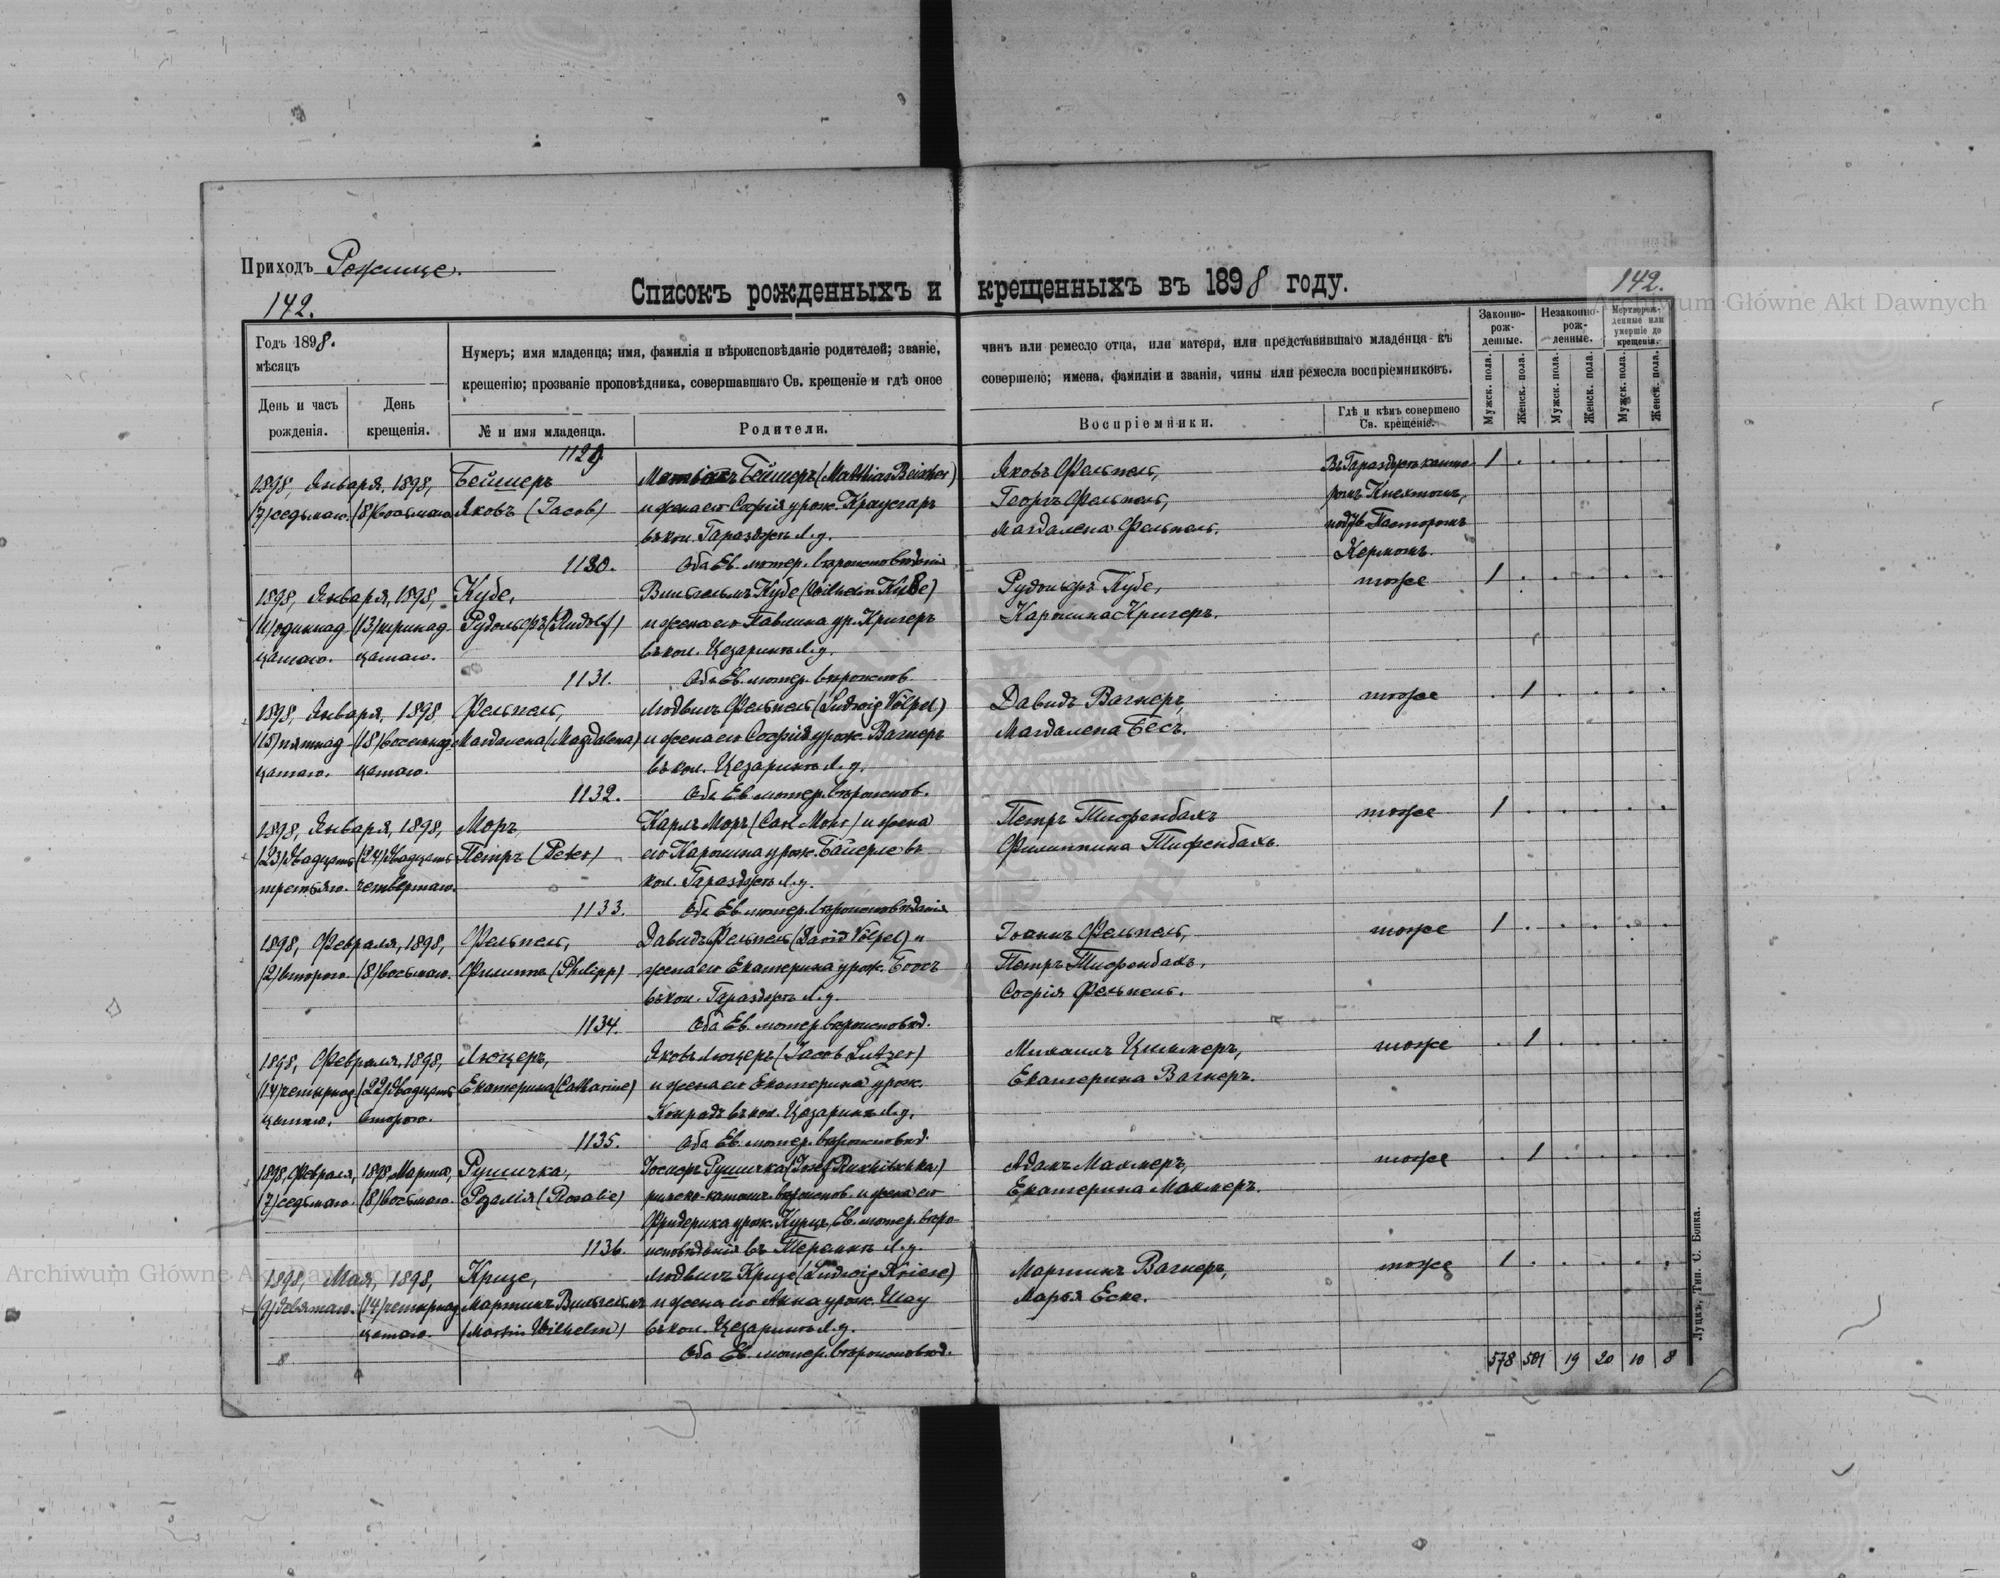 Приходъ Рожище.
142.
142.
Списокъ рожденныхъ и крещенныхъ въ 1898 году.
Archiwum Główne Akt Dawnych
Годъ 1898.
мѣсяцъ
День и часъ рожденія.
День крещенія.
Нумеръ; имя младенца; имя, фамилія и вѣроисповѣданіе родителей; званіе, чинъ или ремесло отца, или матери, или представившаго младенца къ
крещенію; прозваніе проповѣдника, совершавшаго Св. крещеніе и гдѣ оное совершено; имена, фамиліи и званія, чины или ремесла воспріемниковъ.
№ и имя младенца.
Родители.
Воспріемники.
Гдѣ и кѣмъ совершено Св. крещеніе.
Законно-рожденные.
Незаконно-рожденные.
Мертворожденные или умершіе до крещенія.
Мужск. пола.
Женск. пола.
Мужск. пола.
Женск. пола.
Мужск. пола.
Женск. пола.
1129
1898, Января, 1898,
(7) седьмаго. (8) восьмаго
Бейшеръ
Яковъ (Jacob)
Матвѣй Бейшеръ (Mathias Beischer)
и жена его Софія урож. Краусгаръ
въ кол. Гараздже Л. у.
Оба Ев. лютер. вѣроисповѣданія
Яковъ Фельпель,
Георгъ Фельпель,
Магдалена Фельпель.
Въ Гараздже канто-
ромъ Кнехтомъ,
подтв. Пасторомъ
Кермомъ.
1
1130.
1898, Января, 1898,
(11) одиннад- (13) тринад-
цатаго. цатаго.
Кубе,
Рудольфъ (Rudolf)
Вильгельмъ Кубе (Wilhelm Kube)
и жена его Павлина ур. Кригеръ
въ кол. Цезаринъ Л. у.
Оба Ев. лютер. вѣроиспов.
Рудольфъ Кубе,
Каролина Кригеръ.
тоже
1
1131.
1898, Января, 1898
(15) пятнад- (18) восемнад-
цатаго. цатаго.
Фельпель,
Магдалена (Magdalena)
Людвигъ Фельпель (Ludwig Völpel)
и жена его Софія урож. Вагнеръ
въ кол. Цезаринъ Л. у.
Оба Ев. лютер. вѣроиспов.
Давидъ Вагнеръ,
Магдалена Бесъ.
тоже
1
1132.
1898, Января, 1898,
(23) двадцать (24) двадцать
третьяго. четвертаго.
Моръ,
Петръ (Peter)
Карлъ Моръ (Carl Mohr) и жена
его Каролина урож. Байерле въ
кол. Гараздже Л. у.
Оба Ев. лютер. вѣроисповѣданія
Петръ Тифенбахъ
Филиппина Тифенбахъ.
тоже
1
1133.
1898, Февраля, 1898,
(2) втораго. (8) восьмаго.
Фельпель,
Филиппъ (Philipp)
Давидъ Фельпель (David Völpel) и
жена его Екатерина урож. Боосъ
въ кол. Гараздже Л. у.
Оба Ев. лютер. вѣроисповѣд.
Іоаннъ Фельпель,
Петръ Тифенбахъ,
Софія Фельпель.
тоже
1
1134.
1898, Февраля, 1898,
(14) четырнад- (22) двадцать
цатаго. втораго.
Люцеръ,
Екатерина (Catharine)
Яковъ Люцеръ (Jacob Lutzer)
и жена его Екатерина урож.
Конрадъ въ кол. Цезаринъ Л. у.
Оба Ев. лютер. вѣроисповѣд.
Михаилъ Цильмеръ,
Екатерина Вагнеръ.
тоже
1
1135.
1898, Февраля, 1898, Марта,
(7) седьмаго. (8) восьмаго.
Рушичка,
Розалія (Rosalie)
Іосифъ Рушичка (Josef Ruschitschka)
римско-катол. вѣроиспов. и жена его
Фридерика урож. Курцъ, Ев. лютер. вѣро-
исповѣданія въ Теремнѣ Л. у.
Адамъ Махмеръ,
Екатерина Махмеръ.
тоже
1
1136.
1898, Мая, 1898,
(9) девятаго. (14) четырнад-
цатаго.
Кризе,
Мартинъ Вильгельмъ
(Martin Wilhelm)
Людвигъ Кризе (Ludwig Kriese)
и жена его Анна урож. Шау
въ кол. Цезаринъ Л. у.
Оба Ев. лютер. вѣроисповѣд.
Мартинъ Вагнеръ,
Марья Еске.
тоже
1
578 501 19 20 10 8
Луцкъ, Тип. С. Бонка.
Archiwum Główne Akt Dawnych